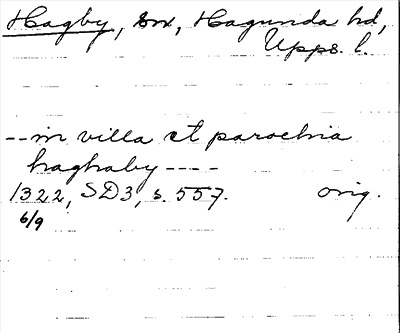 Hagby, sn, Hagunda hd,
Upps. l.
--in villa et parochia
haghaby ----
1322, SD3, s. 557. orig.
6/9